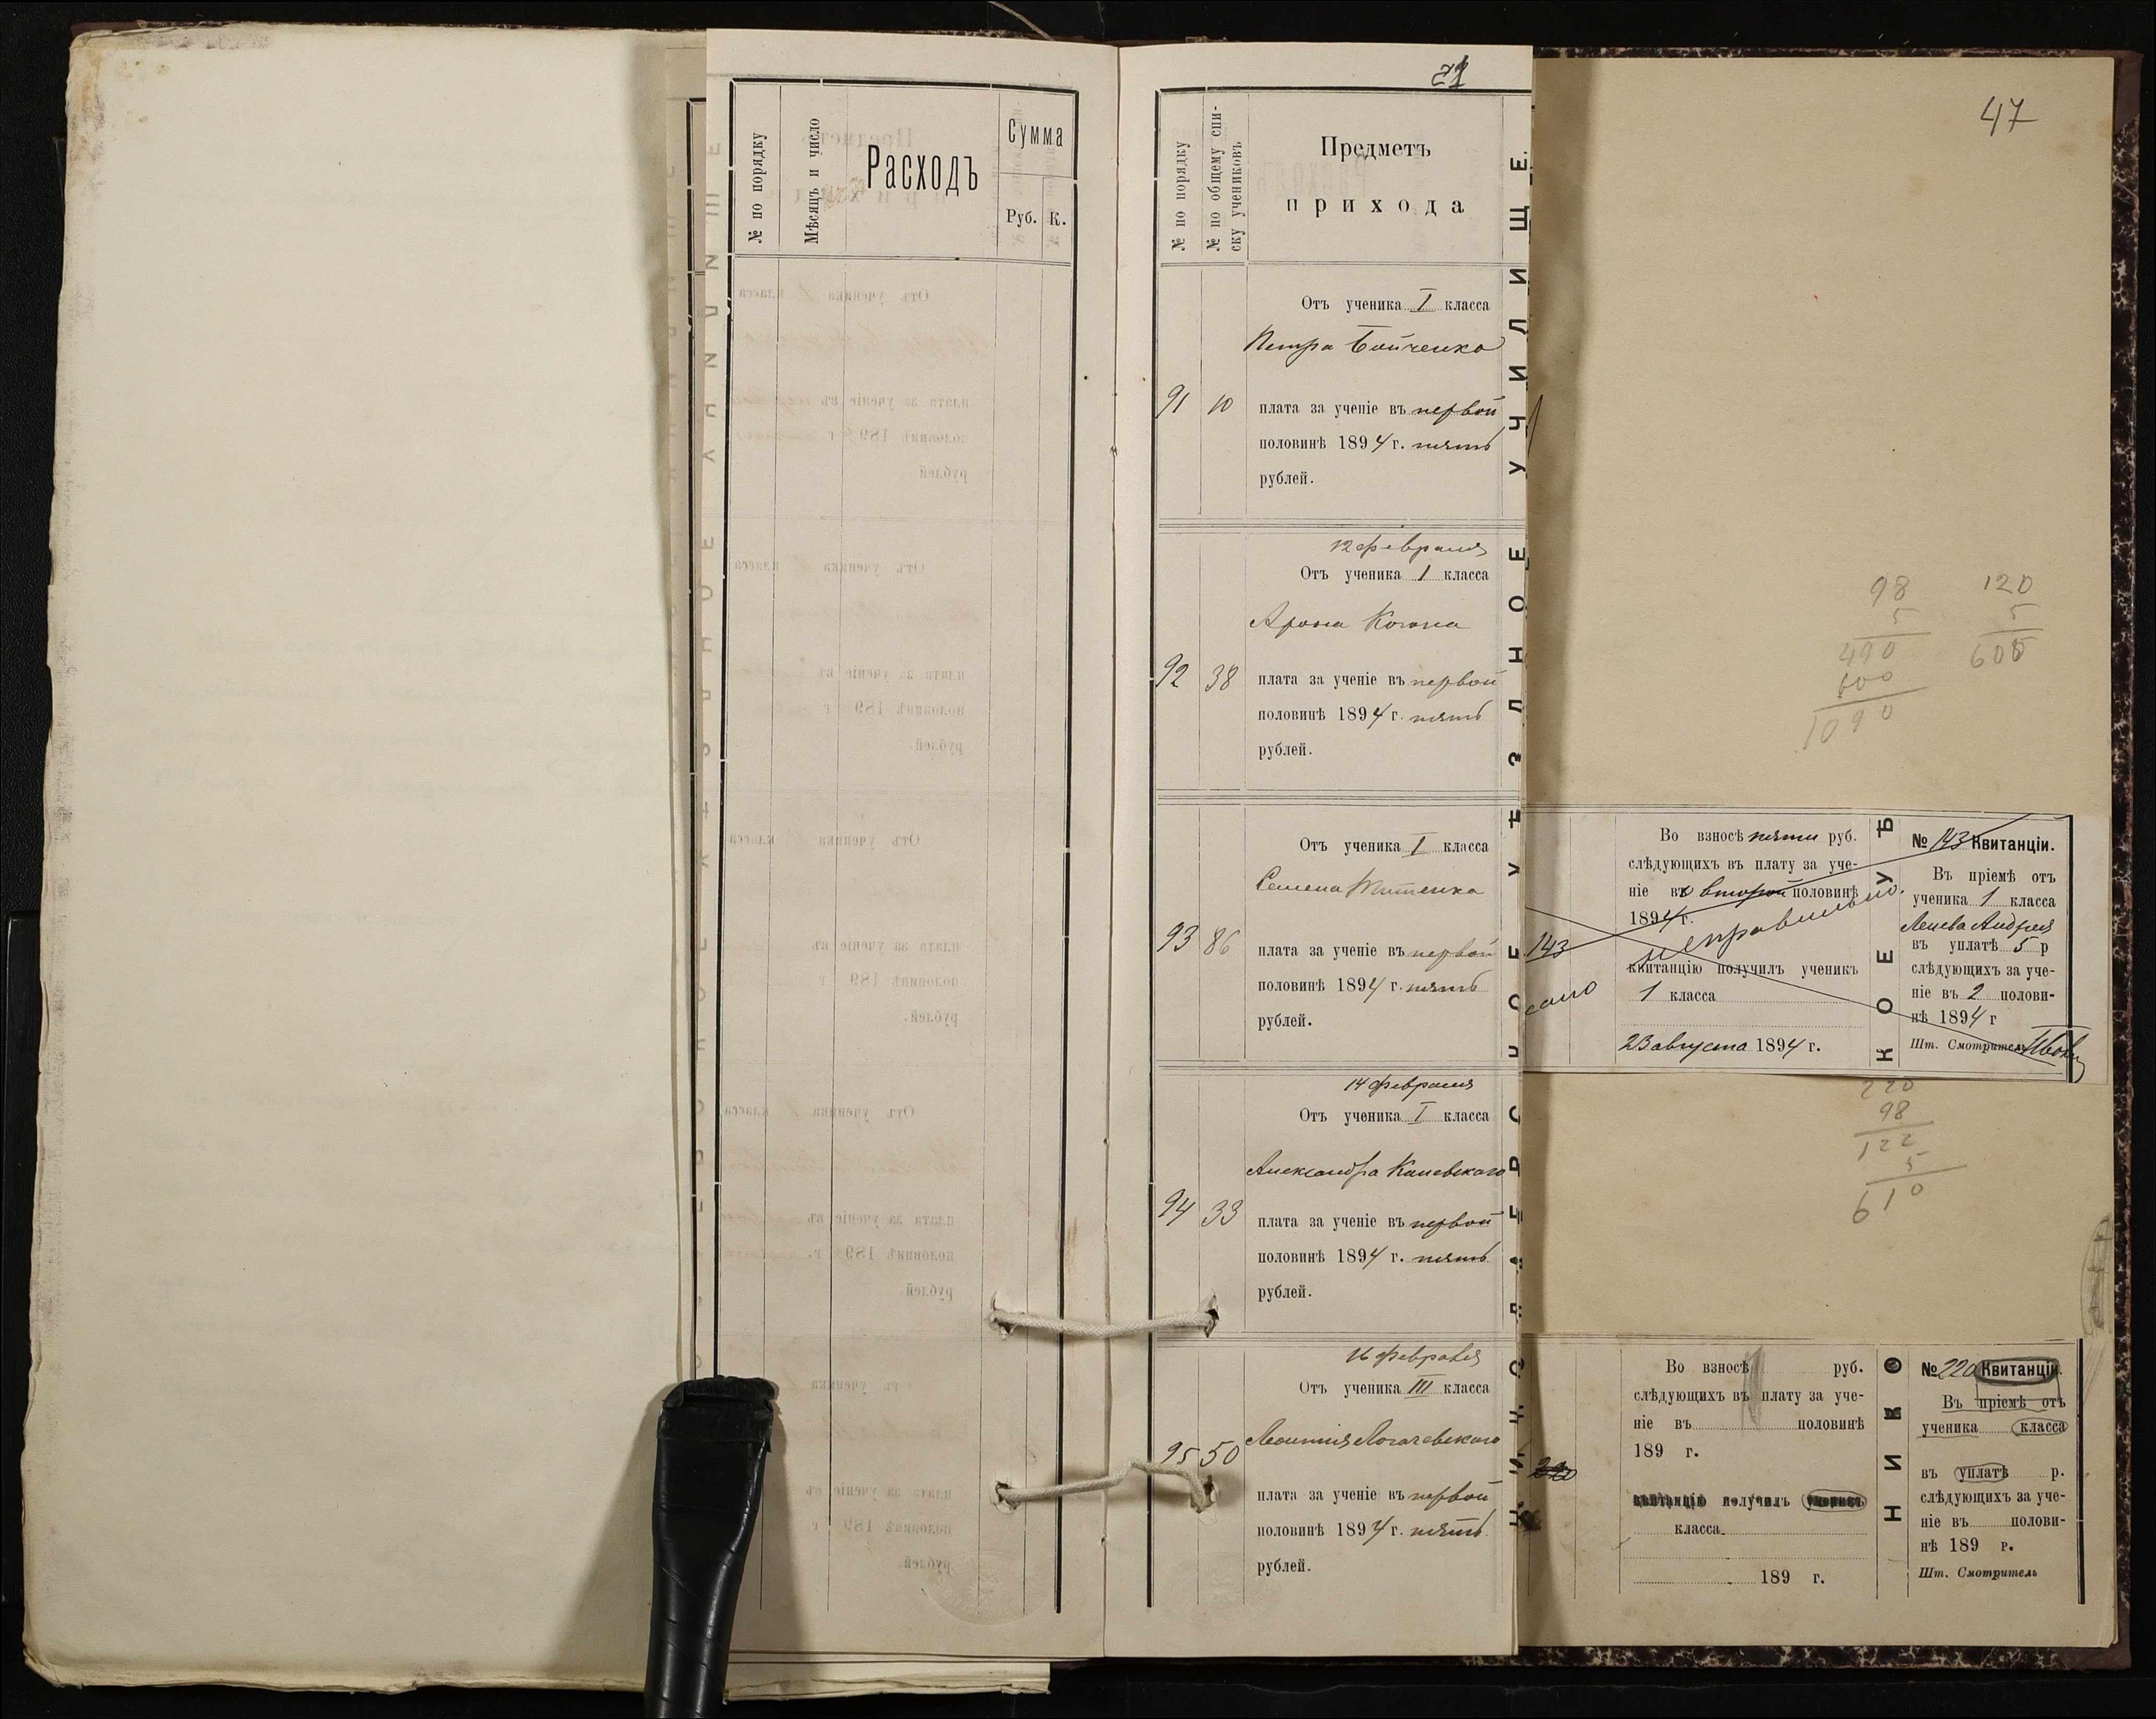 № по порядку
Мѣсяцъ и число
Расходъ
Сумма
Руб.
К.
21
№ по порядку
№ по общему спи-
ску учениковъ
Предметъ
прихода
Отъ ученика I класса
Петра Бойченко
91 10 плата за ученіе въ первой
половинѣ 1894 г. пять
рублей.
12 февраля
Отъ ученика 1 класса
Арона Когона
92 38 плата за ученіе въ первой
половинѣ 1894 г. пять
рублей.
Отъ ученика I класса
Семена
93 86 плата за ученіе въ первой
половинѣ 1894 г. пять
рублей.
14 февраля
Отъ ученика I класса
Александра Каневскаго
94 33 плата за ученіе въ первой
половинѣ 1894 г. пять
рублей.
16 февраля
Отъ ученика III класса
Леонтія Логачевскаго
95 50
плата за ученіе въ первой
половинѣ 1894 г. пять
рублей.
УЧИЛИЩЕ.
47
98
5
490
600
1090
120
5
600
143
Во взносѣ пяти руб.
слѣдующихъ въ плату за уче-
ніе во второй половинѣ
1894 г.
неправильно.
квитанцію получилъ ученикъ
1 класса
23 августа 1894 г.
КОЕ УѢ
№ 143 Квитанціи.
Въ пріемѣ отъ
ученика 1 класса
Андрея
въ уплатѣ 5 р
слѣдующихъ за уче-
ніе въ 2 полови-
нѣ 1894 г
Шт. Смотритель
220
98
122
5
610
220
Во взносѣ руб.
слѣдующихъ въ плату за уче-
ніе въ половинѣ
189 г.
квитанцію получилъ ученикъ
класса
189 г.
НИКО
№ 220 Квитанціи.
Въ пріемѣ отъ
ученика класса
въ уплатѣ р.
слѣдующихъ за уче-
ніе въ полови-
нѣ 189 г.
Шт. Смотритель